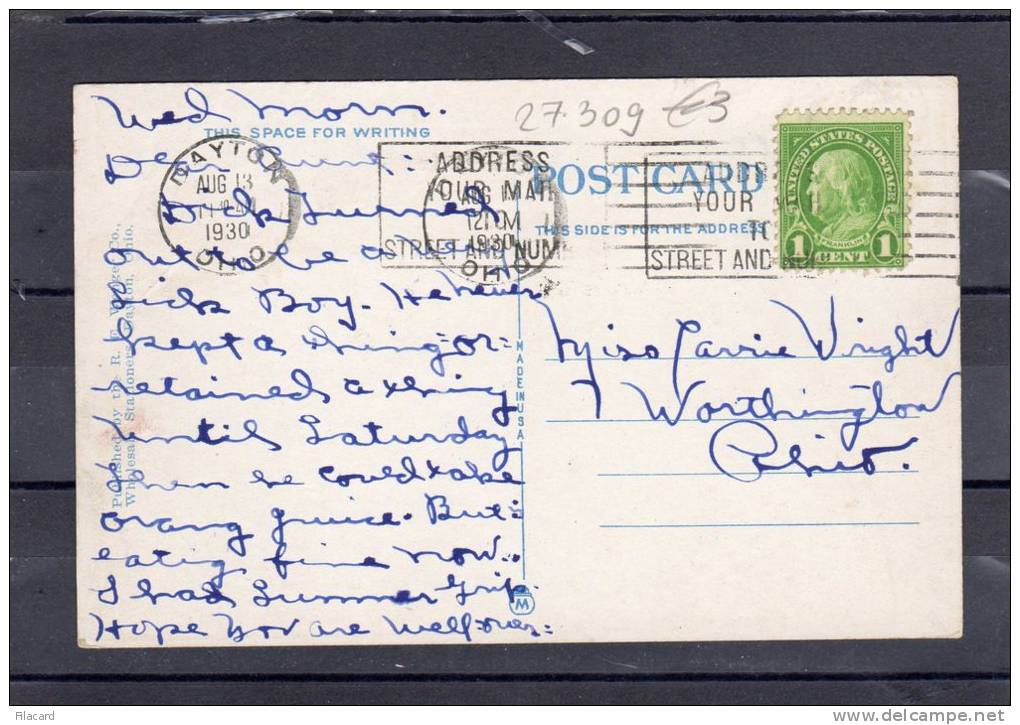 Wed Morn.
27.309 €3
THIS SPACE FOR WRITING
Dear Aunt:
Dick turned
out to be a
sick Boy. He never
kept a thing-or-
retained a thing
until Saturday
when he could take
orang juice. But:
eatig fine now..
I had Summer Grip.
Hope you are well-over=
DAYTON
AUG 13
1930
OHIO
ADDRESS
YOUR MAIL
STREET AND NUM
AUG 1
12 PM
1930
OHIO
POST CARD
THIS SIDE IS FOR THE ADDRESS
ADDR
YOUR
TO
STREET AND
UNITED STATES POSTAGE
FRANKLIN
1 CENT 1
Miss Carrie Wright
Worthington
Ohio.
Published by the R. F.
Wholesale Stationers, Dayton, Ohio.
MADE IN USA
M
Filacard
www.delcampe.net